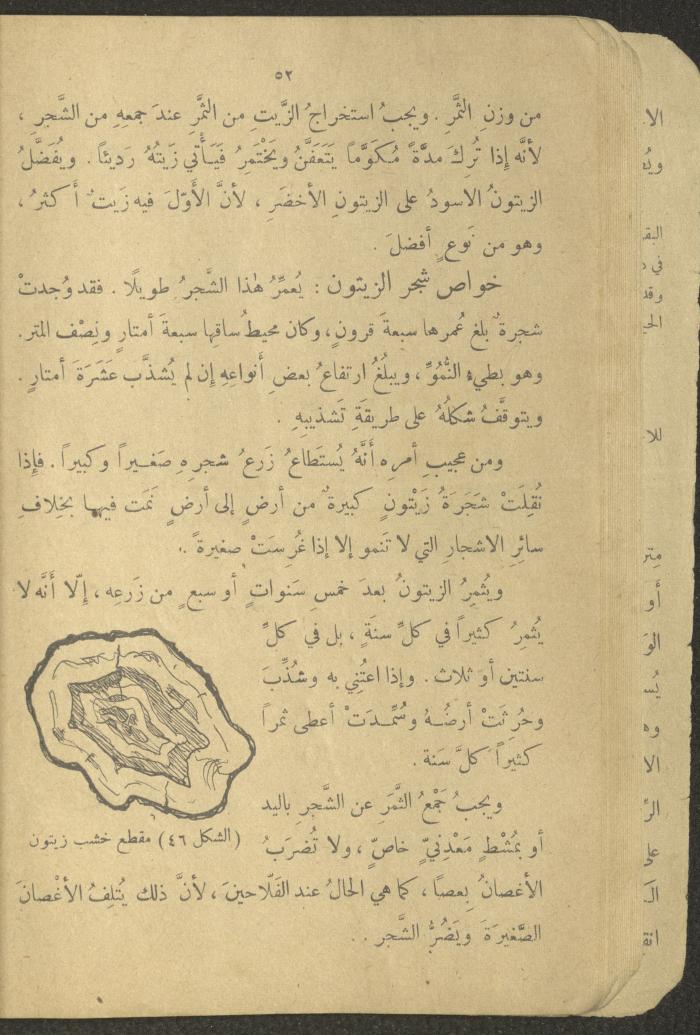 ٥٢
من وزنِ الثَّمَرِ . ويجبُ استخراجُ الزَّيتِ من الثَّمَرِ عندَ جمعِهِ من الشَّجرِ ،
لأنَّه إذا تُرِكَ مدَّةً مُكَوَّماً يَتَعَفَّنُ ويَخْتَمِرُ فَيَأْتي زَيتهُ رَديئاً . ويُفَضَّلُ
الزيتونُ الاسودُ على الزيتونِ الأخضَرِ ، لأنَّ الأَوّلَ فيه زَيتٌ أَكثرُ ،
وهو من نَوعٍ أفضلَ .
خواص شجر الزيتون : يُعمَّرُ هٰذا الشَّجرُ طويلًا . فقد وُجدتْ
شجرةٌ بلغ عُمرها سبعةَ قرونٍ ، وكان محيطُ ساقِها سبعةَ أمتارٍ ونِصْف المتر .
وهو بطيءِ النُّمُوِّ ، ويبلُغُ ارتفاعُ بعضِ أَنواعِهِ إن لم يُشذَّب عَشَرَةَ أمتارٍ .
ويتوقَّفُ شكلُهُ على طريقَةِ تَشذيبِهِ .
ومن عجيبِ أمرِه أَنَّهُ يُستَطاعُ زَرعُ شجرِهِ صَغيراً وكبيراً . فإِذا
نُقِلَتْ شَجَرَةُ زَيْتونٍ كبيرةٌ من أرضٍ إلى أرضٍ نَمَت فيها بخِلافِ
سائِرِ الاشجارِ التي لا تَنمو إلا إذا غُرِسَتْ صغيرةً .
ويُثمِرُ الزيتونُ بعدَ خمسِ سَنواتٍ أو سبعٍ من زَرعِه ، إلّا أنَّه لا
يُثمِرُ كثيراً في كلِّ سنَةٍ ، بل في كلِّ
سنتين أو ثلاث . وإذا اعتُني به وشُذِّبَ
وحُرِثَتْ أرضُهُ وسُمِّدَتْ أعطى ثمراً
كثيراً كلَّ سَنة .
ويجبُ جَمْعُ الثَّمَرِ عن الشَّجرِ باليد
أو بمُشْطٍ مَعْدِنيٍّ خاصٍّ ، ولا تُضرَبُ
(الشكل ٤٦) مقطع خشب زيتون
الأغصانُ بِعصاً ، كما هي الحالُ عند الفَلّاحينَ ، لأنَّ ذلك يُتلِفُ الأغْصانَ
الصَّغيرَةَ ويَضُرُّ الشَّجر .